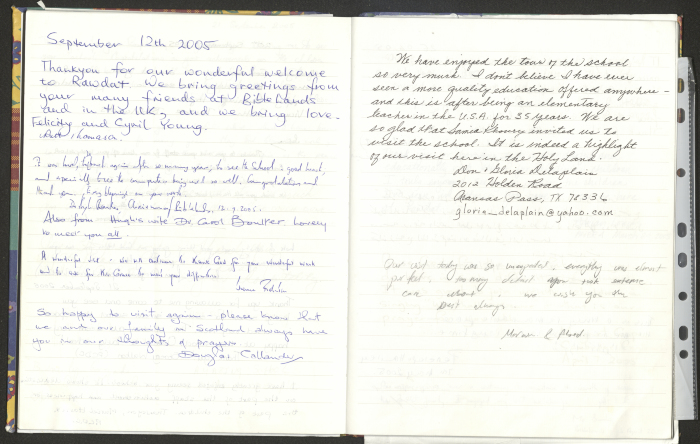 September 12th 2005
Thankyou for our wonderful welcome
to Rawdat. We bring greetings from
your many friends at BibleLands
and in the UK, and we bring love.
Felicity and Cyril Young.
I am back, again after so many years, to see the School in good hands,
and especially to see computers being used so well. Congratulations and
thank you.
Chairman, BibleLands. 12.9.2005.
Also from Hugh's wife Dr. Carol Boulter lovely
to meet you all.
A wonderful visit - we will continue to thank God for your wonderful work
and to ask for His Grace to
So happy to visit again - please know that
we and our family in Scotland always have
you in our thoughts & prayers
Douglas Callander
We have enjoyed the tour of the school
so very much. I don't believe I have ever
seen a more quality education offered anywhere -
and this is after being an elementary
teacher in the U.S.A. for 35 years. We are
so glad that Samia Khoury invited us to
visit the school. It is indeed a highlight
of our visit here in the Holy Land.
Don & Gloria Delaplain
2012 Holden Road
Aransas Pass, TX 78336
gloria_delaplain@yahoo.com
Our visit today was so everything was almost
perfect. not
can we wish you the
best always.